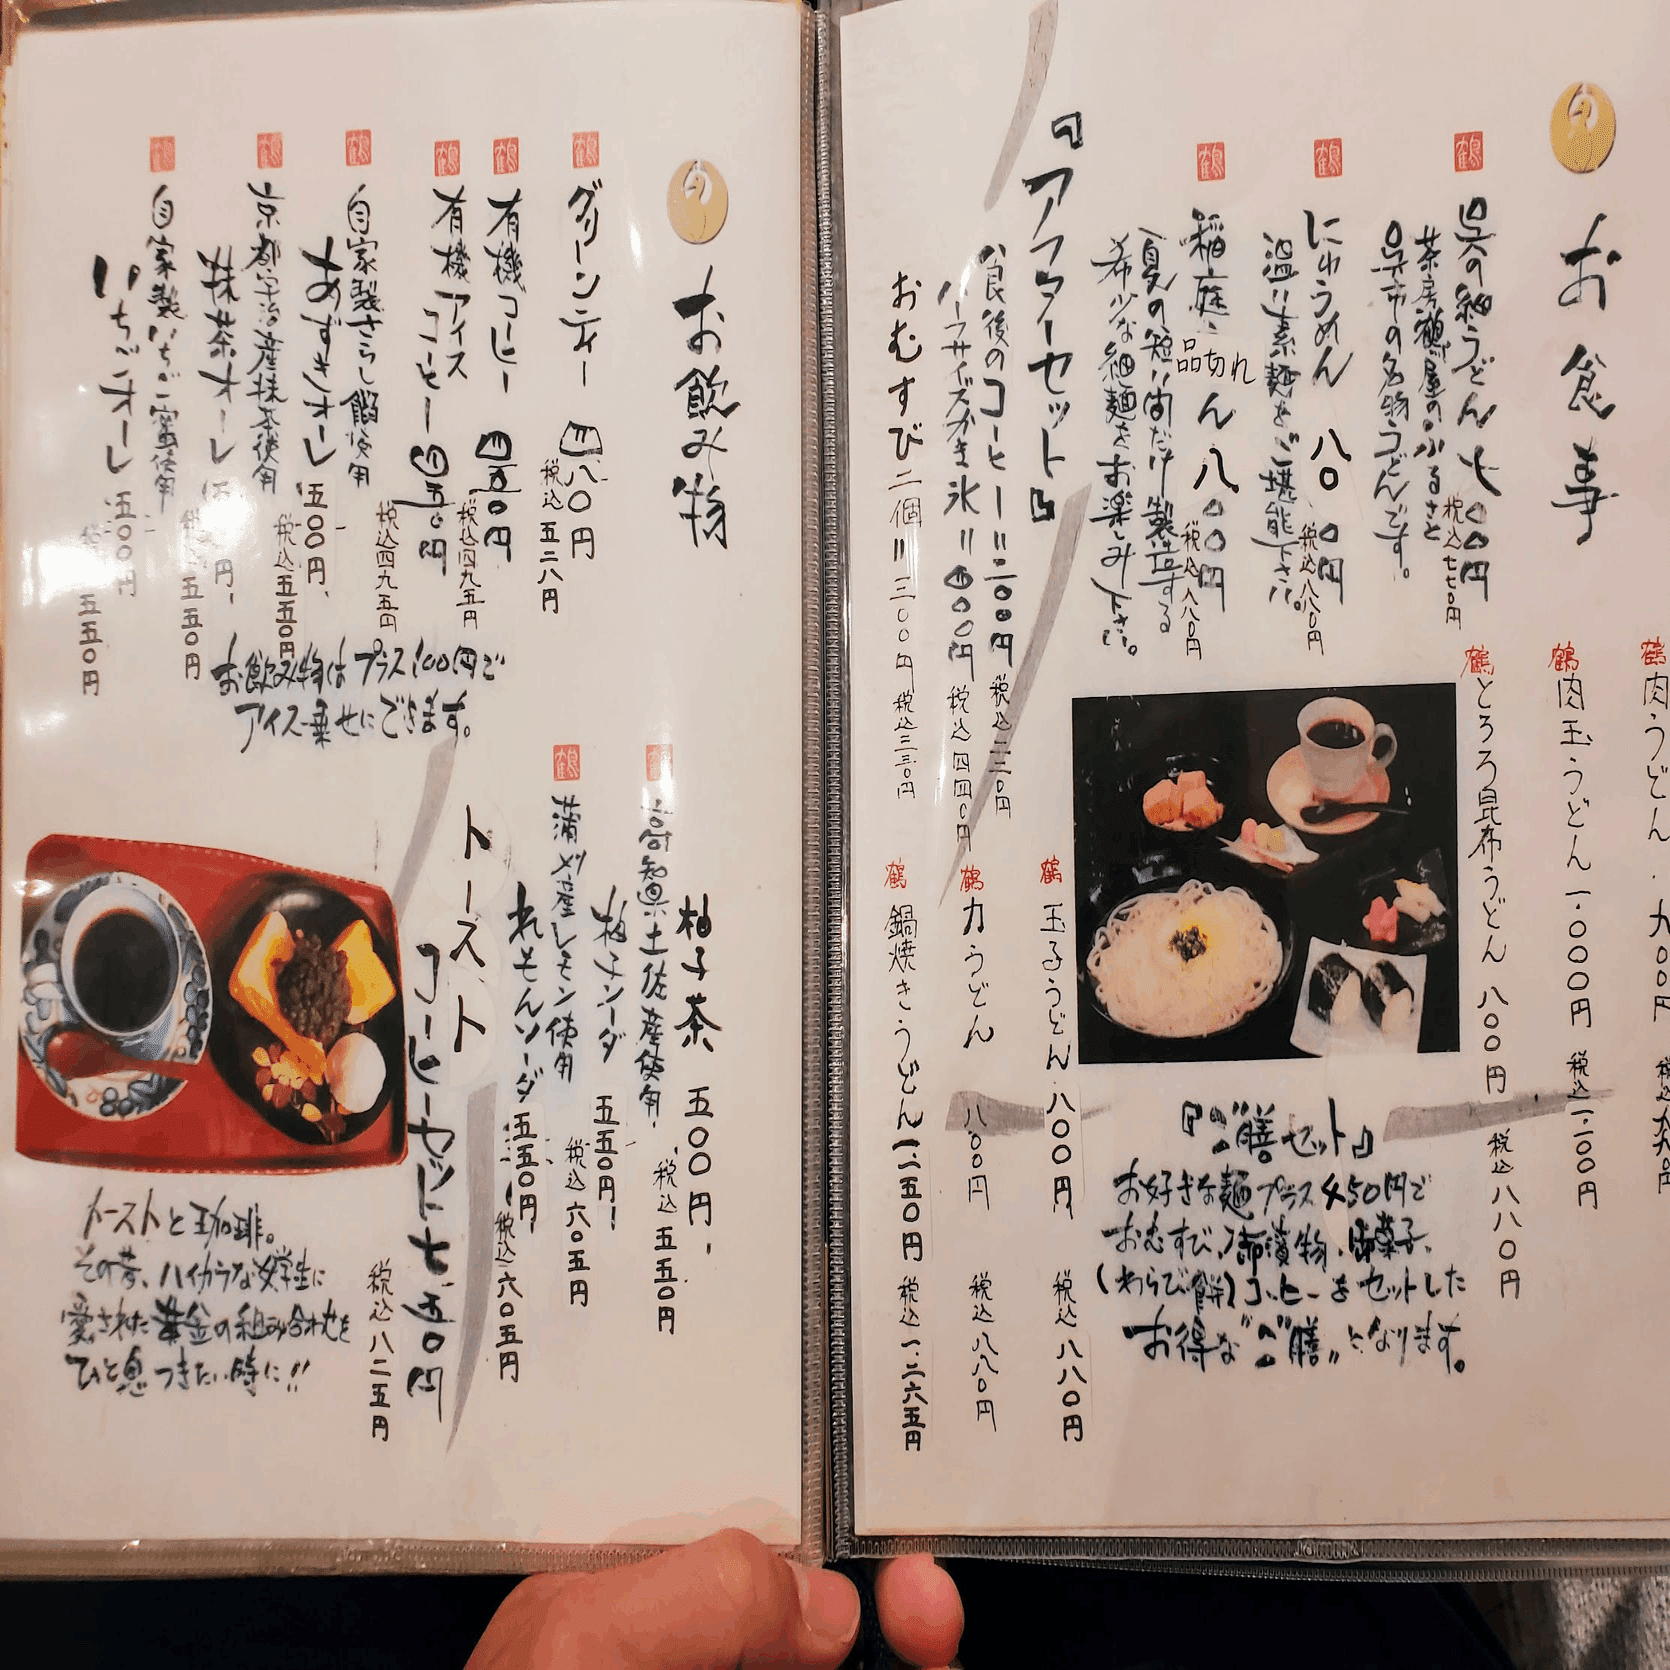 お食事
呉の細うどん 七〇〇円
税込七七〇円
茶房鶴屋のふるさと
呉市の名物うどんです。
にゅうめん 八〇〇円
税込八八〇円
温い素麺をご堪能下さい。
稲庭 ん 八〇〇円
品切れ
税込八八〇円
夏の短い間だけ製造する
希少な細麺をお楽しみ下さい。
『アフターセット』
食後のコーヒー=二〇〇円
税込二二〇円
ハーフサイズかき氷=四〇〇円
税込四四〇円
おむすび二個=三〇〇円 税込三三〇円
鶴 肉うどん 九〇〇円
鶴 肉玉うどん 一・〇〇〇円 税込一・一〇〇円
鶴 とろろ昆布うどん 八〇〇円 税込八八〇円
鶴 玉子うどん 八〇〇円 税込八八〇円
鶴 力うどん 八〇〇円 税込八八〇円
鶴 鍋焼きうどん 一・一五〇円 税込一・二六五円
『ご膳セット』
お好きな麺プラス450円で
おむすび、御漬物、御菓子、
(わらび餅)コーヒーをセットした
お得な"ご膳"になります。
お飲み物
グリーンティー 四八〇円
税込五二八円
有機コーヒー 四五〇円
税込四九五円
有機アイスコーヒー 四五〇円
税込四九五円
自家製さらし餡使用
あずきオーレ 五〇〇円、
税込五五〇円
京都宇治産抹茶使用
抹茶オーレ 円、
五五〇円
自家製いちご蜜使用
いちごオーレ 五〇〇円
五五〇円
お飲み物はプラス100円で
アイス乗せにできます。
柚子茶 五〇〇円、
税込五五〇円
高知県土佐産使用、
柚子ソーダ 五五〇円!
税込六〇五円
蒲刈産レモン使用
れもんソーダ 五五〇円!
税込六〇五円
トースト
コーヒーセット 七五〇円
税込八二五円
トーストと珈琲。
その昔、ハイカラな女学生に
愛された黄金の組み合わせを
ひと息つきたい時に!!